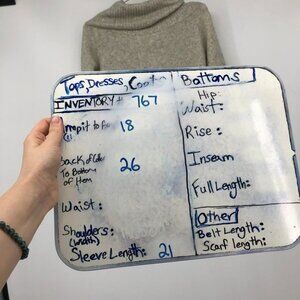 Tops, Dresses, Coats
INVENTORY # 767
Armpit to 18
Back of
To Bottom 26
of Hem
Waist:
Shoulders:
(width)
Sleeve Length: 21
Bottoms
Hip:
Waist:
Rise:
Inseam
Full Length:
Other
Belt Length:
Scarf length: